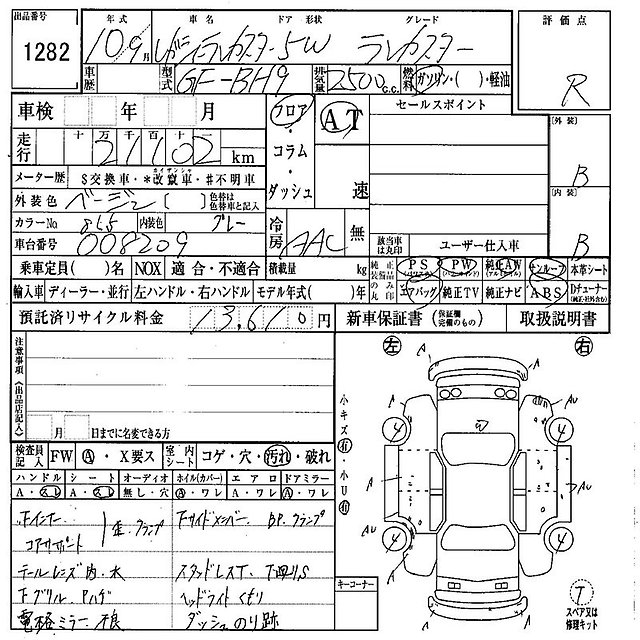 出品番号
1282
年式 車名 ドア 形状 グレード
10 9月 レガシィランカスター 5W ランカスター
車歴 型式 GF-BH9 排気量 2500 c.c. 燃料 ガソリン・( )・軽油
評価点
R
車検 年 月
十 万 千 百 十 一
走行 21102 km
メーター歴 S交換車・*改竄車・#不明車
カイザンシャ
外装色 ベージュ ( ) 色替は色替車と記入
カラーNo 855 内装色 グレー
車台番号 008209
フロア・コラム・ダッシュ
AT
速
冷房 AAC 無
セールスポイント
[外装]
B
[内装]
B
該当車は丸印 ユーザー仕入車
乗車定員( )名 NOX 適合・不適合 積載量 kg
輸入車 ディーラー・並行 左ハンドル・右ハンドル モデル年式( )年
純正装備品のみ丸印
PS PW 純正AW サンルーフ 本革シート
エアバッグ 純正TV 純正ナビ ABS Dチューナー
預託済リサイクル料金 13,610円
新車保証書(保証欄完備のもの) 取扱説明書
注意事項(出品店記入)
月 日までに名変できる方
検査員記入 FW A・X要ス 室内シート コゲ・穴・汚れ・破れ
ハンドル シート オーディオ ホイル(カバー) エアロ ドアミラー
A・スレ A・スレ 無し・穴 A・ワレ A・ワレ A・ワレ
下インナー
コアサポート
歪、クランプ
下サイドメンバー B.P.クランプ
テールレンズ内・水
スタッドレスT. 下回りS
下グリル Pハゲ
ヘッドライトくもり
電格ミラー不良
ダッシュのり跡
小キズ有・小U有
キーコーナー
左 右
A
A
A
AU
W
4 4
A
AU
AU
4 4
A
AU
T
スペア又は修理キット